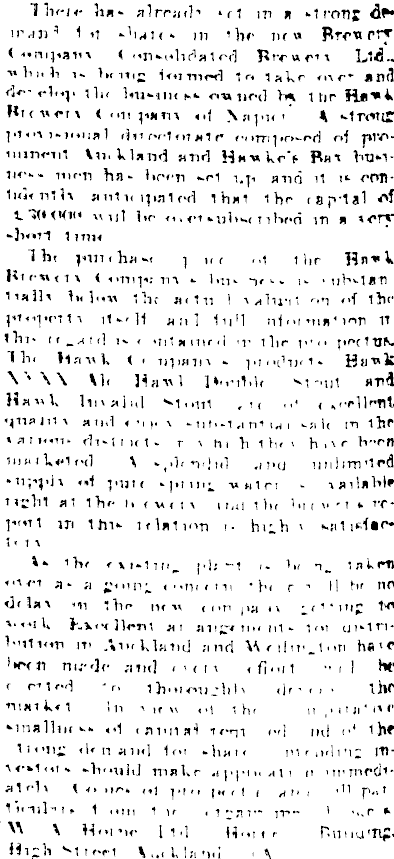 There has already set in a strong de-
mand for shares in the new Brewery
Company Consolidated Brewery Ltd.,
which is being formed to take over and
develop the business owned by the Hawk
Brewery Company of Napier. A strong
provisional directorate composed of pro-
minent Auckland and Hawke's Bay busi-
ness men has been set up and it is con-
fidently anticipated that the capital of
will be oversubscribed in a very
short time
The purchase price of the Hawk
Brewery Company's business is substan-
tially below the actual valuation of the
property itself and full information in
this regard is contained in the prospectus.
The Hawk Company's products Hawk
XXXX Ale Hawk Double Stout and
Hawk Invalid Stout are of excellent
quality and enjoy substantial sale in the
various districts in which they have been
marketed A splendid and unlimited
supply of pure spring water is available
right at the brewery and the brewer's re-
port in this relation is highly satisfac-
tory
As the existing plant is being taken
over as a going concern there will be no
delay in the new company getting to
work Excellent arrangements for distri-
bution in Auckland and Wellington have
been made and every effort will be
exerted to thoroughly develop the
market In view of the comparative
smallness of capital required and of the
strong demand for shares intending in-
vestors should make application immedi-
ately Copies of prospectus and all par-
ticulars from the organisers
W. A. Horne Ltd. Horne Building,
High Street Auckland